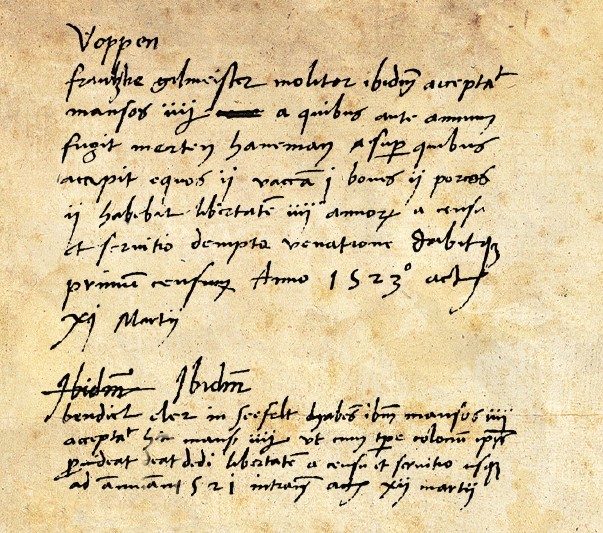 Voppen
frantzke gelmeister molitor ibidm acceptat
mansos iiij a quibus ante annum
fugit merten haneman asup quibus
accipit equos ii vaccam i boves ii porcos
ii habebit libertatem iiij annor a censu
et servitio dempta venatione dabitq
primum censum Anno 1523° act
xj Martij
Ibidm Ibidm
benedict eler in seefelt habes ibm mansos iiij
acceptat mans iiij ut cum tpe colonum
p deat dedi libertate a censu et servitio usq
ad annum 1521 intran act xij martij